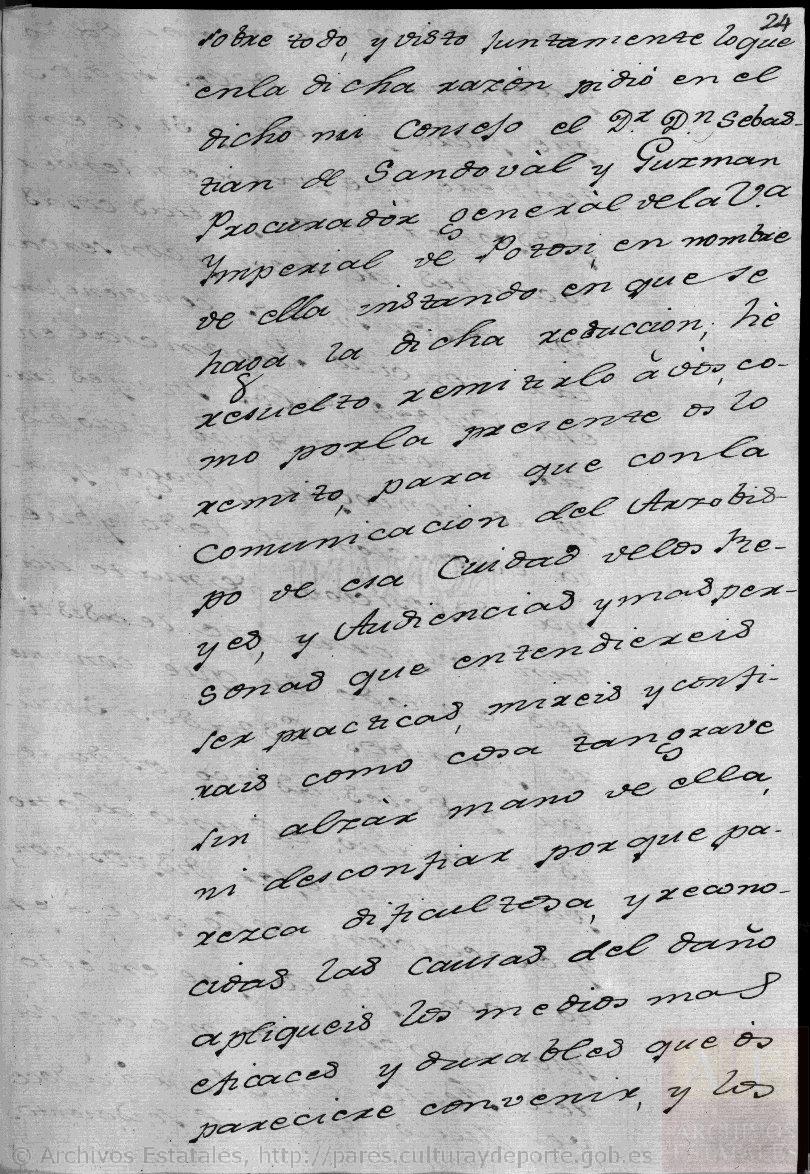 24
sobre todo, y visto juntamente loque
enla dicha razon pidió en el
dicho mi Consejo el Dr. Dn. Sebas-
tian de Sandoval y Guzman
Procurador general dela V.a
Ymperial de Potosi en nombre
de ella instando en que se
haga la dicha reduccion, hè
resuelto remitirlo à vos, co-
mo porla presente os lo
remito, para que conla
comunicacion del Arzobis-
po de esa Cuidad delos Re-
yes, y Audiencias y mas per-
sonas que entendiereis
ser practicas, mireis y confi-
rais como cosa tan grave
sin alzàr mano de ella,
ni desconfiar porque pa-
rezca dificultosa, y recono-
cidas las causas del daño
apliqueis los medios mas
eficaces y durables que òs
pareciere convenir, y los
© Archivos Estatales, http://pares.culturaydeporte.gob.es